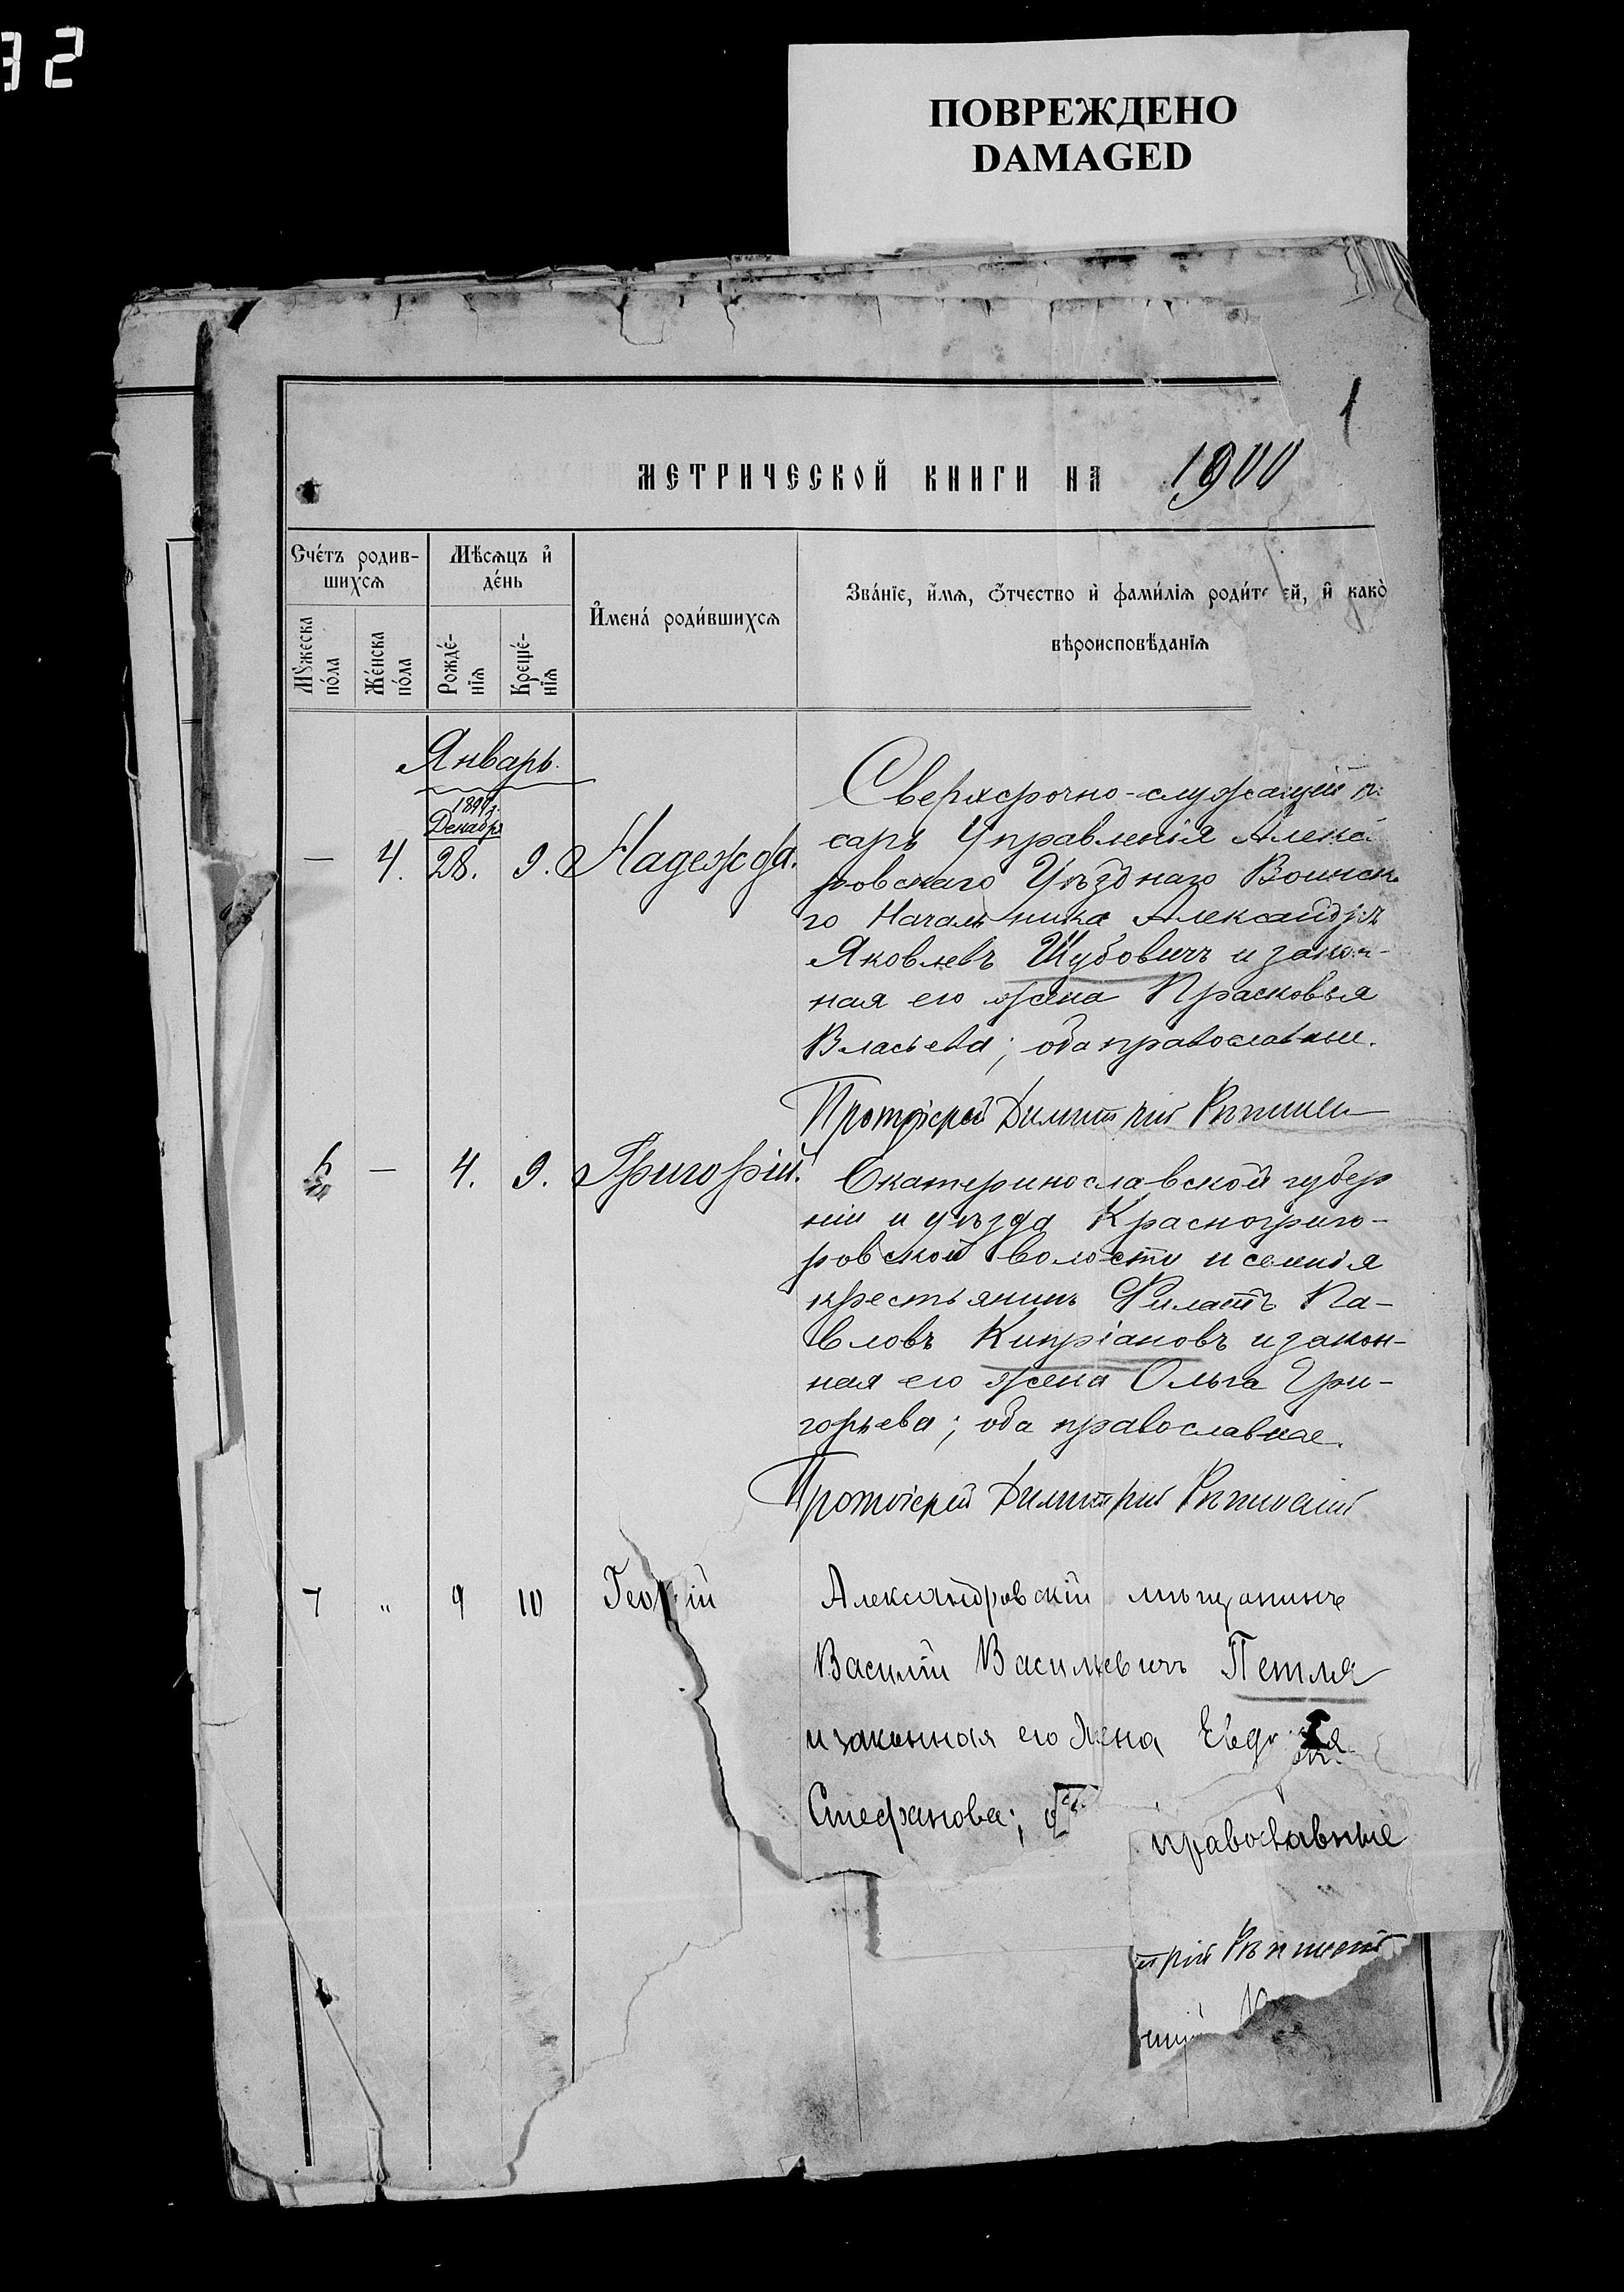 32
ПОВРЕЖДЕНО
DAMAGED
1
МЕТРИЧЕСКОЙ КНИГИ НА 1900
Счетъ родив-
шихся
Мѣсяцъ и
день
Имена родившихся
Званіе, имя, отчество и фамилія родит ей, и како
вѣроисповѣданія
Мужеска
пола
Женска
пола
Рожде-
нія
Креще-
нія
Январь.
1899 г.
Декабр
— 4. 28. 9. Надежда.
Сверхсрочно-служащій
сарь Управленія Алекса
ровскаго Уѣзднаго Воинск
го Начальника Александръ
Яковлевъ Шубовичъ и закон-
ная его жена Прасковья
Власьева; оба православные.
Протоіерей Димитрій
6 — 4. 9. Григорій.
Екатеринославской губер
ніи и уѣзда Красногриго-
ровской волости и селенія
крестьянинъ Филатъ Па-
вловъ Кипріановъ и закон-
ная его жена Ольга Гри-
горьева; оба православные.
Протоіерей Димитрій
7 „ 9 10 Гео ій
Александровскій мѣщанинъ
Василій Васильевичъ Петля
и законная его жена Евдо я
Стефанова; православные
трій